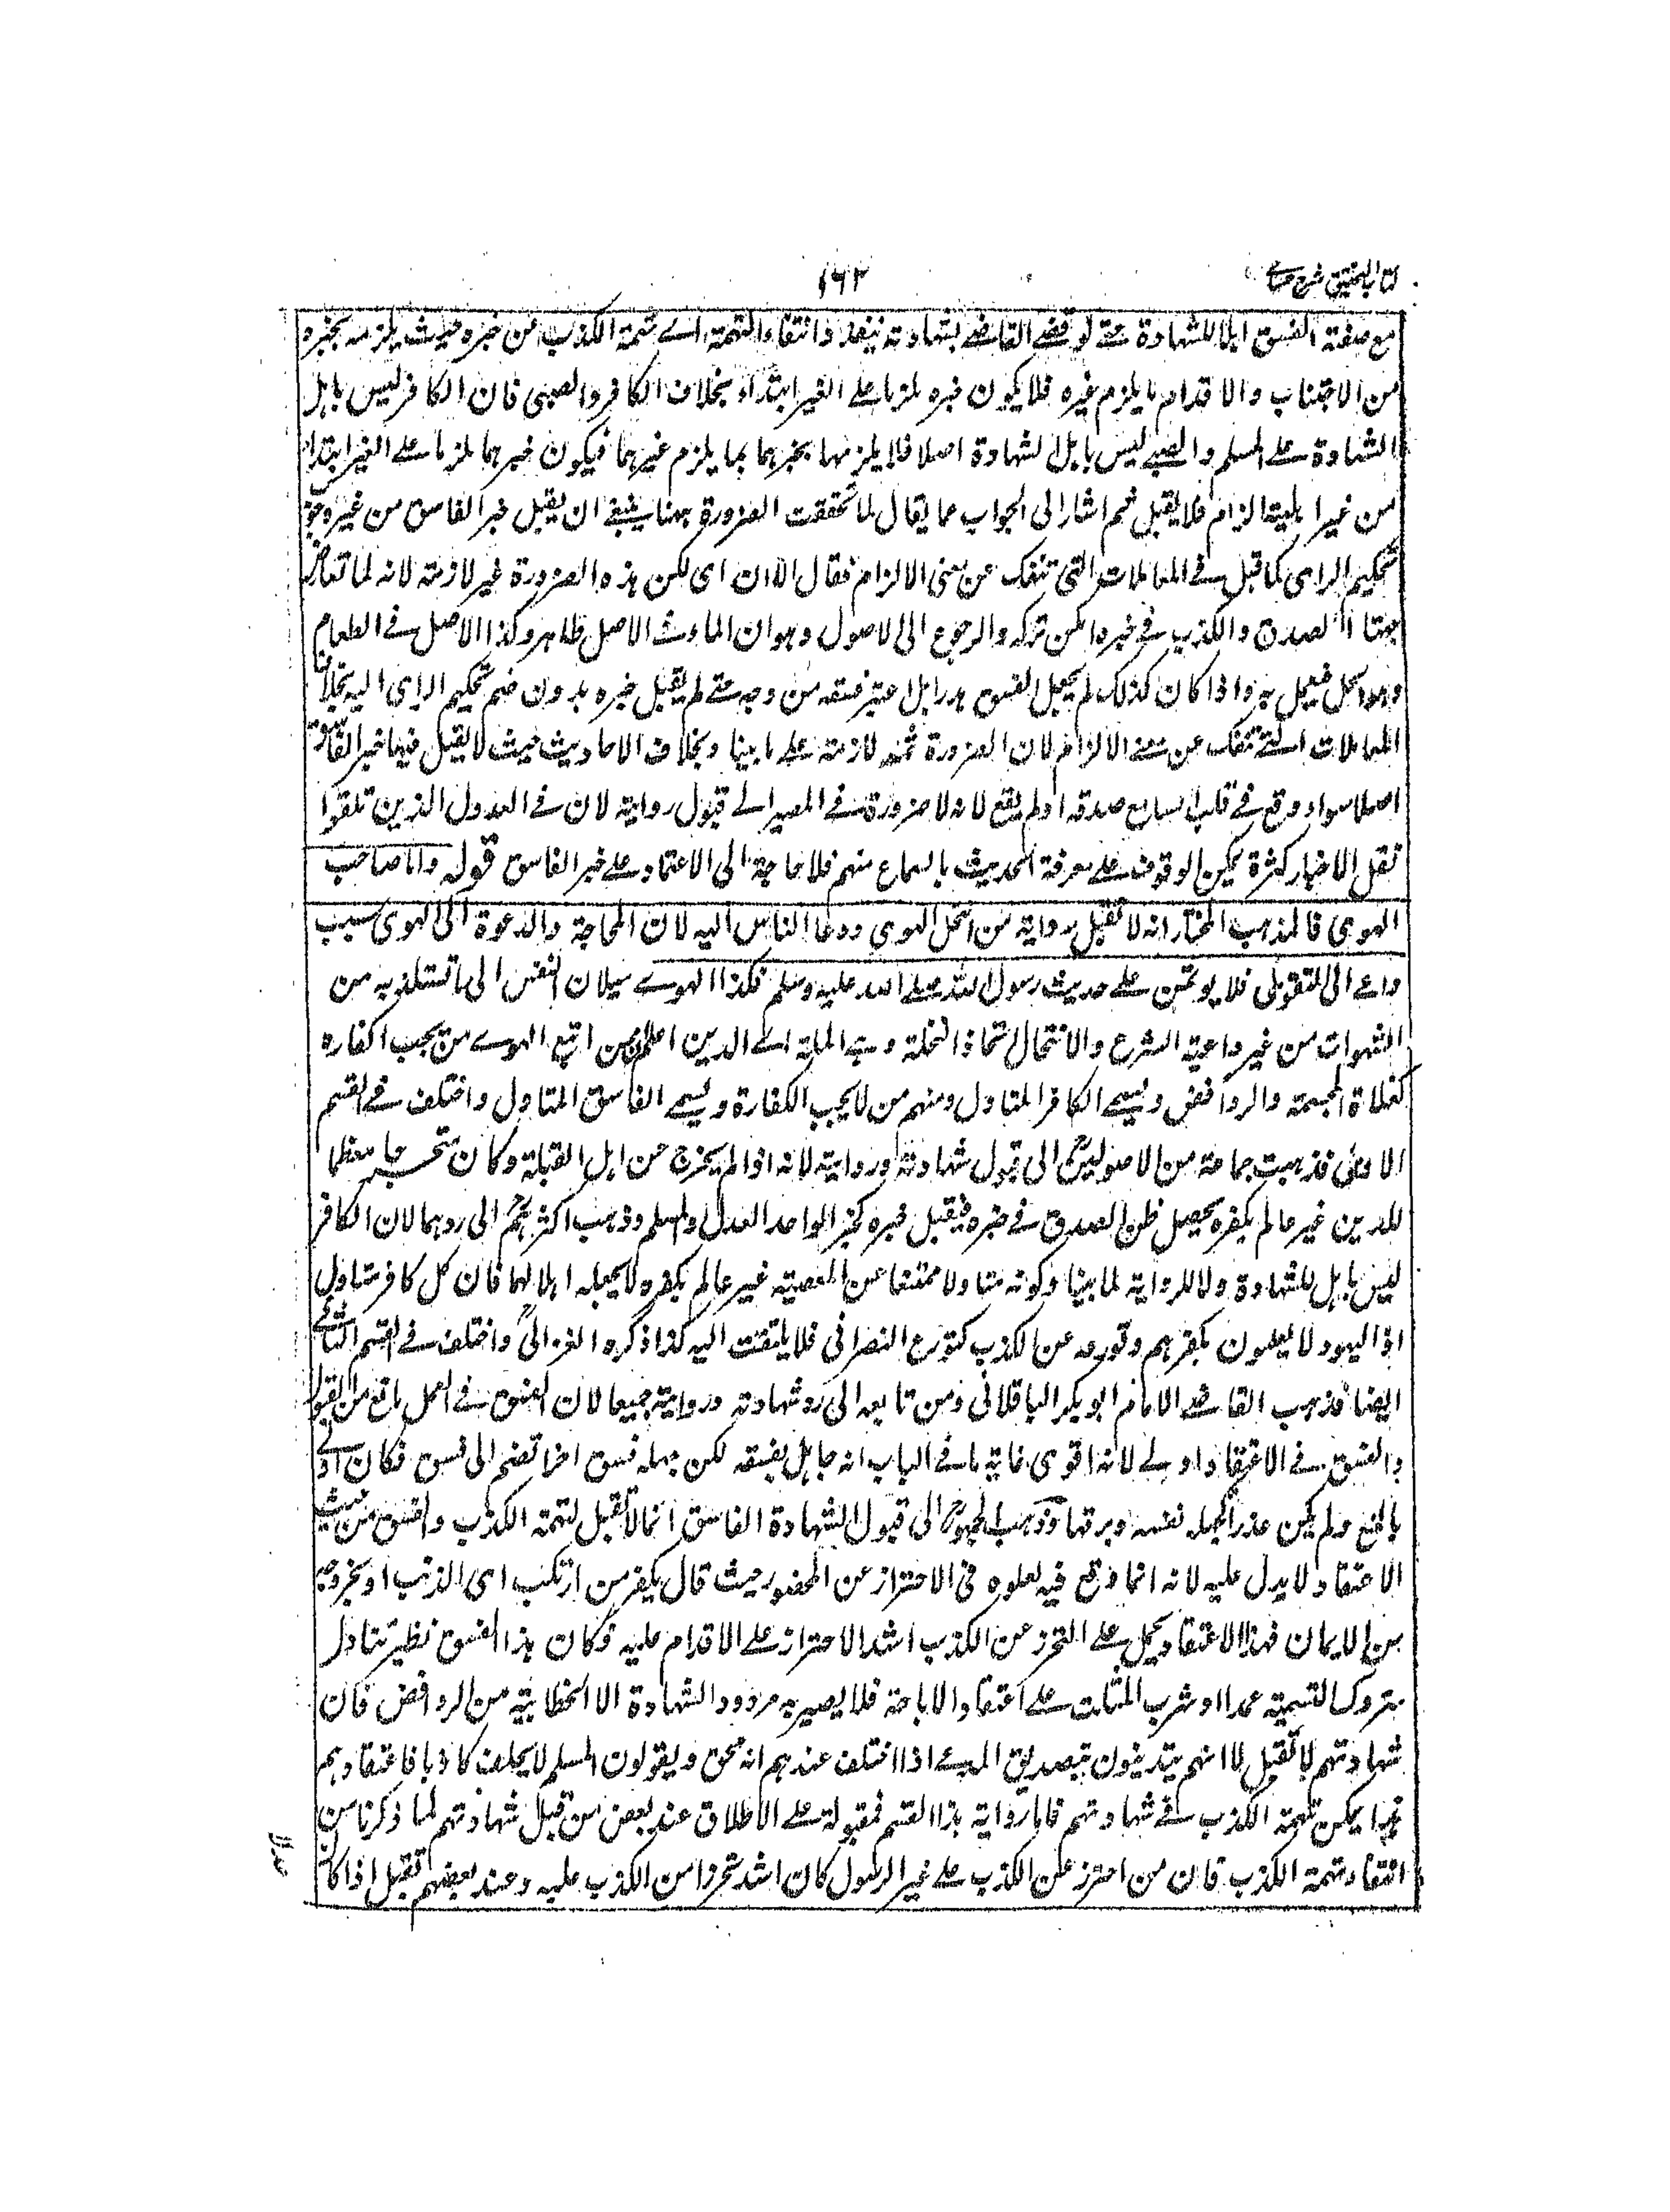 كتاب التحقيق شرح حسامي
١٦٢
مع صفة الفسق اهلا للشهادة حتى لو قضى القاضى بشهادته ينفذ وانتفاء التهمة اى تهمة الكذب من خبره حيث يلزمه بخبره
من الاجتناب والاقدام ما يلزم غيره فلا يكون خبره ملزما على الغير ابتداء بخلاف الكافر والصبى فان الكافر ليس باهل
الشهادة على المسلم والصبى ليس باهل الشهادة اصلا فلا يلزمهما بخبرهما بما يلزم غيرهما فيكون خبرهما ملزما على الغير ابتداء
من غير اهلية الزام فلا يقبل ثم اشار الى الجواب عما يقال لما تحققت الضرورة ههنا ينبغى ان يقبل خبر الفاسق من غير وجوب
تحكيم الراى كما قبل فى المعاملات التى تنفك عن معنى الالزام فقال الا ان اى لكن هذه الضرورة غير لازمة لانه لما تعارض
جهتا الصدق والكذب فى خبره امكن تركه والرجوع الى الاصول وهو ان الماء فى الاصل طاهر وكذا الاصل فى الطعام
وهو الحل فيعمل به واذا كان كذلك لم يجعل الفسق هدرا بل اعتبر فسقه من وجه حتى لم يقبل خبره بدون ضم تحكيم الراى اليه بخلاف
المعاملات التى تنفك عن معنى الالزام لان الضرورة ثمه لازمة على ما بينا وبخلاف الاحاديث حيث لا يقبل فيها خبر الفاسق
اصلا سواء وقع فى قلب السامع صدقه او لم يقع لانه لا ضرورة فى المصير الى قبول روايته لان فى العدول الذين تلقوا
نقل الاخبار كثرة يمكن الوقوف على معرفة الحديث بالسماع منهم فلا حاجة الى الاعتماد على خبر الفاسق قوله واما صاحب
الهوى فالمذهب المختار انه لا تقبل رواية من انتحل الهوى ودعا الناس اليه لان المحاجة والدعوة الى الهوى سبب
داعى الى التقول فلا يؤتمن على حديث رسول الله صلى الله عليه وسلم فكذا الهوى ميلان النفس الى ما تستلذ به من
الشهوات من غير داعية الشرع والانتحال اتخاذ النحلة وهى الملة اى الدين اعلم ان من اتبع الهوى من يجب اكفاره
كغلاة المجسمة والروافض ويسمى الكافر المتاول ومنهم من لا يجب اكفاره ويسمى الفاسق المتاول واختلف فى القسم
الاول فذهبت جماعة من الاصوليين الى قبول شهادته وروايته لانه اذا لم يخرج من اهل القبلة وكان متحرجا معظما
للدين غير عالم بكفره يحصل ظن الصدق فى خبره فيقبل خبره كخبر الواحد العدل المسلم وذهب اكثرهم الى ردهما لان الكافر
ليس باهل للشهادة ولا للرواية لما بينا وكونه متاولا ممتنعا عن المعصية غير عالم بكفره لا يجعله اهلا لهما فان كل كافر متاول
اذ اليهود لا يعلمون بكفرهم وتورعه عن الكذب كتورع النصرانى فلا يلتفت اليه كذا ذكره الغزالى واختلف فى القسم الثانى
ايضا فذهب القاضى الامام ابو بكر الباقلانى ومن تابعه الى رد شهادته وروايته جميعا لان الفسق فى العمل مانع من القبول
والفسق فى الاعتقاد اولى لانه اقوى غاية ما فى الباب انه جاهل بفسقه لكن جهله فسق اخر انضم الى فسق فكان اولى
بالمنع ولم يكن عذرا كجهله نفسه وبرقها وذهب الجمهور الى قبول الشهادة الفاسق انما لا تقبل لتهمة الكذب والفسق من حيث
الاعتقاد لا يدل عليه لانه انما وقع فيه لغلوه فى الاحتراز عن المحضور حيث قال يكفر من ارتكب اى الذنب او بخروجه
من الايمان فهذا الاعتقاد يحمل على التحرز عن الكذب اشد الاحتراز على الاقدام عليه فكان هذا الفسق نظير تناول
متروك التسمية عمدا او شرب المثلث على اعتقاد الاباحة فلا يصير به مردود الشهادة الا الخطابية من الروافض فان
شهادتهم لا تقبل لانهم يتدينون بتصديق المدعى اذا اختلف عندهم انه محق ويقولون المسلم لا يحلف كاذبا فاعتقادهم
هذا يمكن تهمة الكذب فى شهادتهم فاما رواية هذا القسم فمقبولة على الاطلاق عند بعض من قبل شهادتهم لما ذكرنا من
انتفاء تهمة الكذب فان من احترز عن الكذب على غير الرسول كان اشد تحرزا من الكذب عليه وعند بعضهم تقبل اذا كان